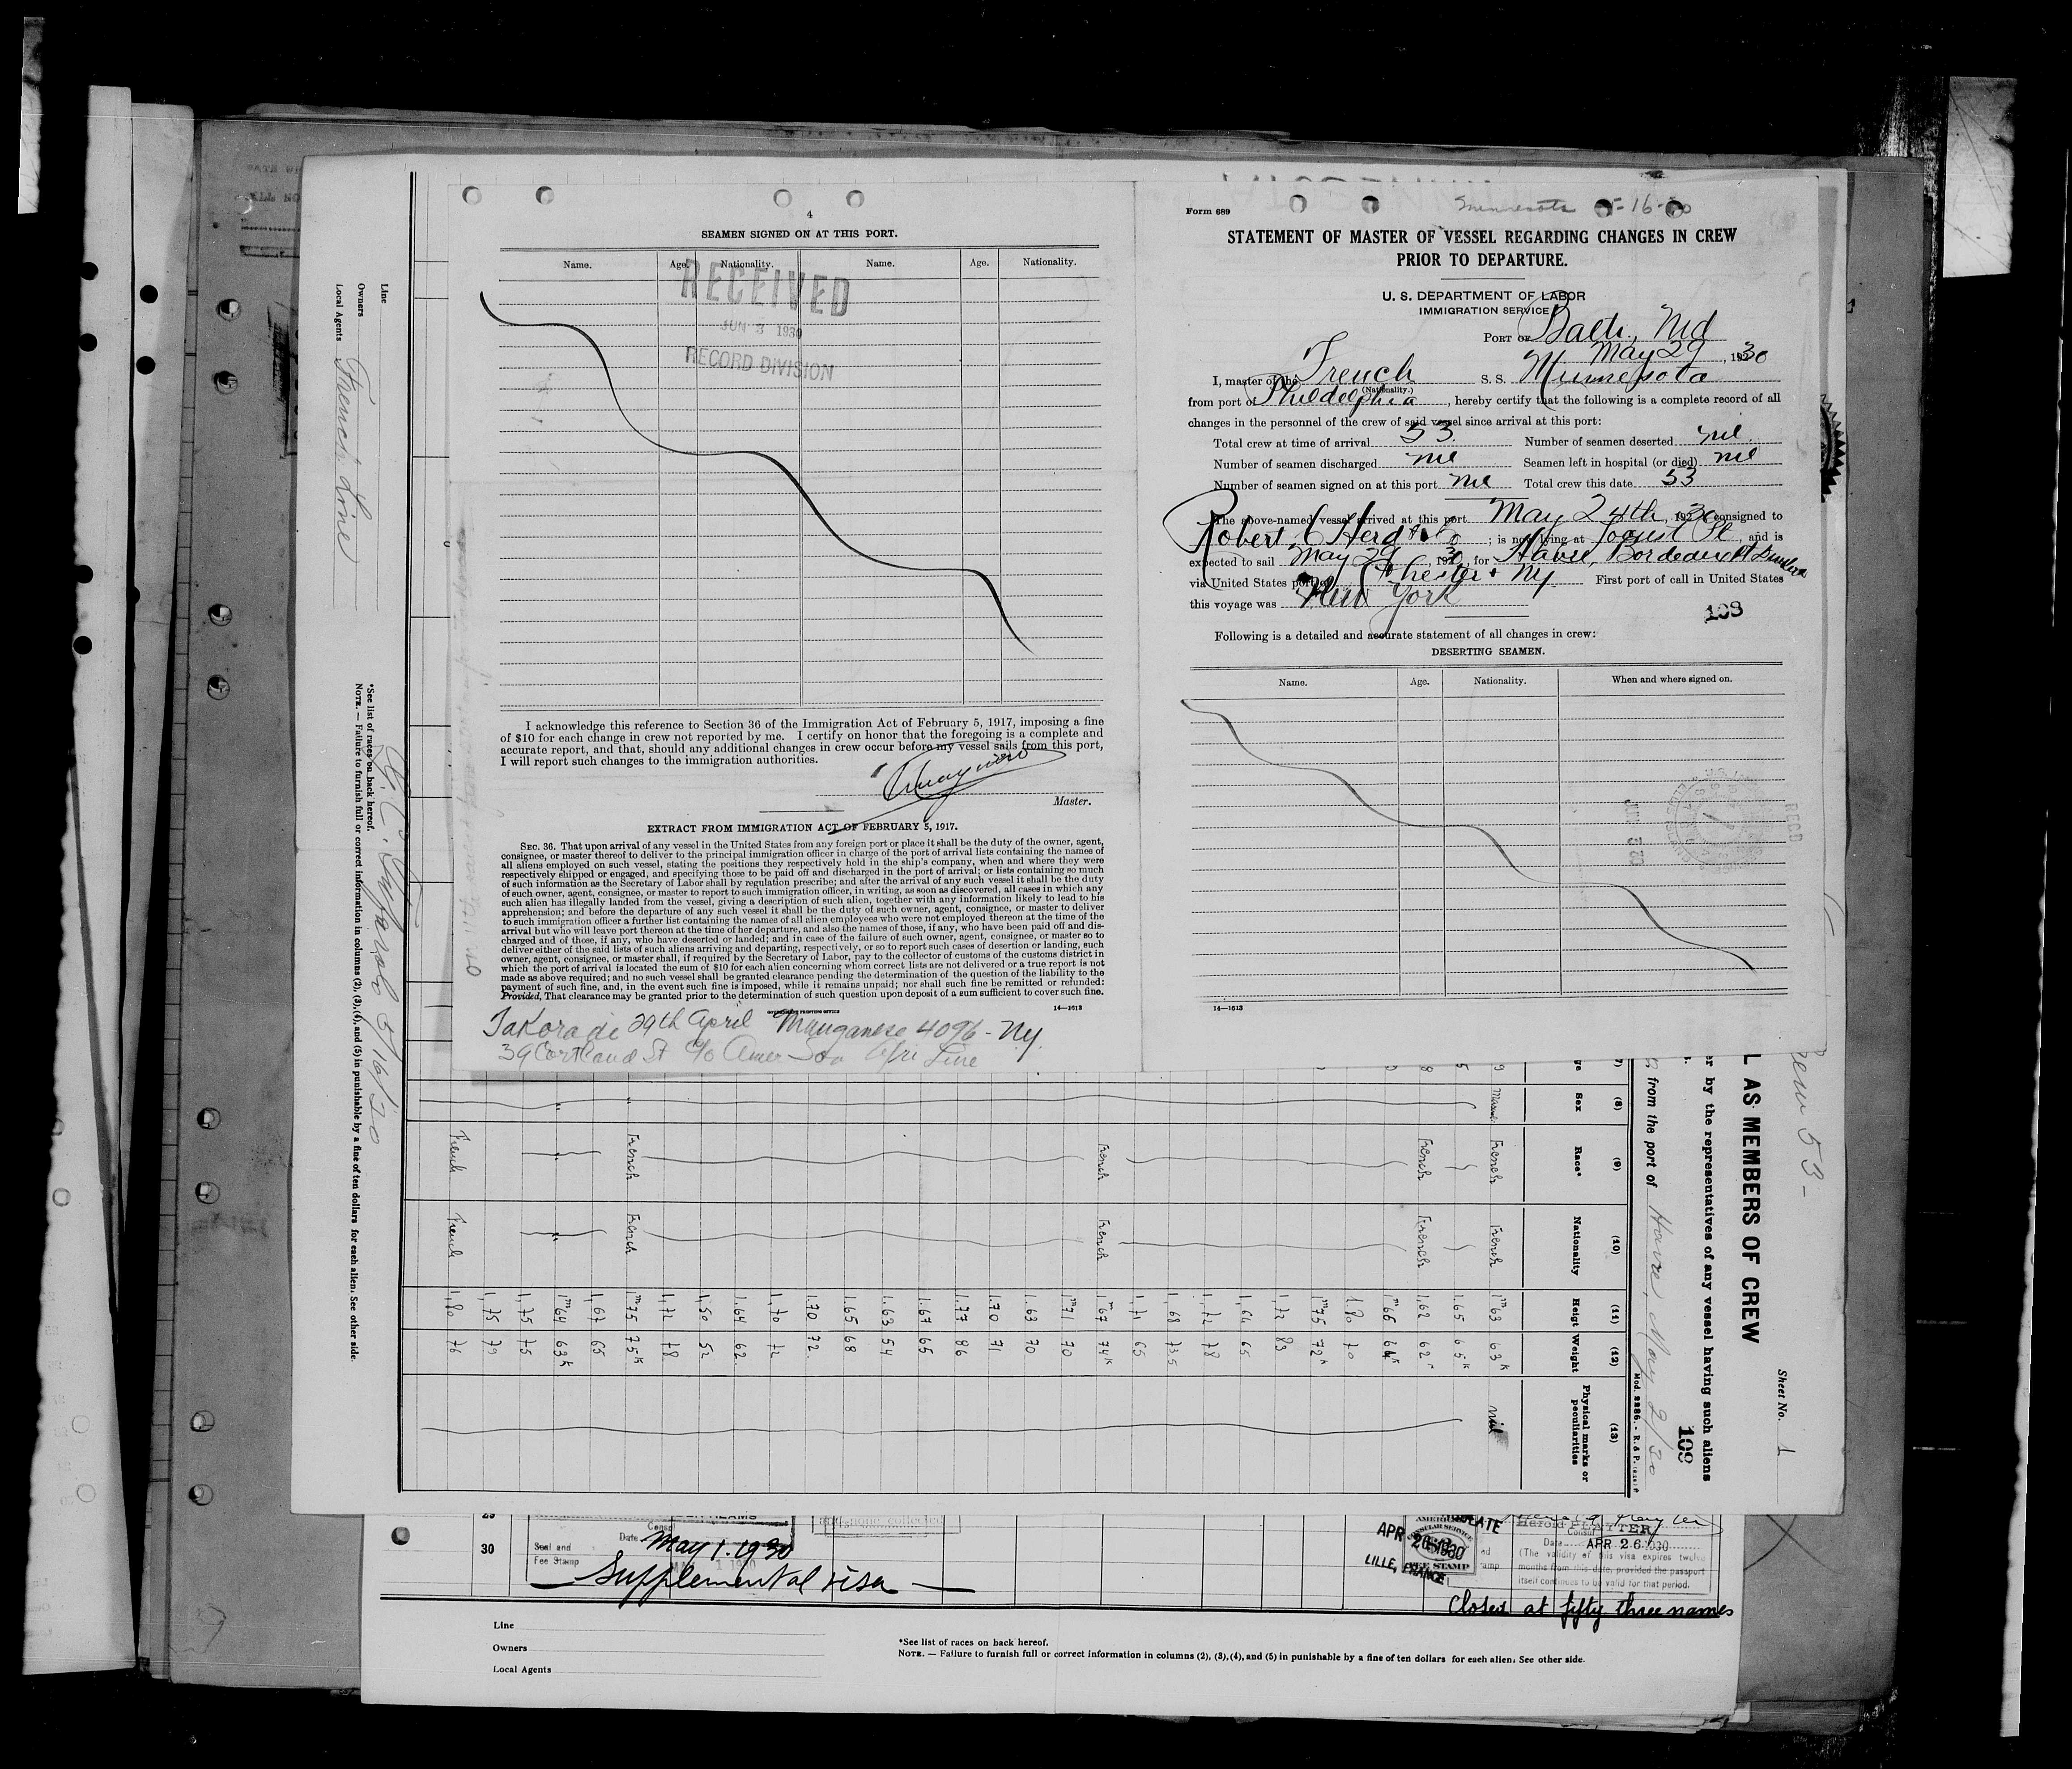 4
SEAMEN SIGNED ON AT THIS PORT.
Name. Age. Nationality. Name. Age. Nationality.
RECEIVED
JUN 3 1930
RECORD DIVISION
I acknowledge this reference to Section 36 of the Immigration Act of February 5, 1917, imposing a fine
of $10 for each change in crew not reported by me. I certify on honor that the foregoing is a complete and
accurate report, and that, should any additional changes in crew occur before my vessel sails from this port,
I will report such changes to the immigration authorities.
Master.
EXTRACT FROM IMMIGRATION ACT OF FEBRUARY 5, 1917.
SEC. 36. That upon arrival of any vessel in the United States from any foreign port or place it shall be the duty of the owner, agent,
consignee, or master thereof to deliver to the principal immigration officer in charge of the port of arrival lists containing the names of
all aliens employed on such vessel, stating the positions they respectively hold in the ship's company, when and where they were
respectively shipped or engaged, and specifying those to be paid off and discharged in the port of arrival; or lists containing so much
of such information as the Secretary of Labor shall by regulation prescribe; and after the arrival of any such vessel it shall be the duty
of such owner, agent, consignee, or master to report to such immigration officer, in writing, as soon as discovered, all cases in which any
such alien has illegally landed from the vessel, giving a description of such alien, together with any information likely to lead to his
apprehension; and before the departure of any such vessel it shall be the duty of such owner, agent, consignee, or master to deliver
to such immigration officer a further list containing the names of all alien employees who were not employed thereon at the time of the
arrival but who will leave port thereon at the time of her departure, and also the names of those, if any, who have been paid off and dis-
charged and of those, if any, who have deserted or landed; and in case of the failure of such owner, agent, consignee, or master so to
deliver either of the said lists of such aliens arriving and departing, respectively, or so to report such cases of desertion or landing, such
owner, agent, consignee, or master shall, if required by the Secretary of Labor, pay to the collector of customs of the customs district in
which the port of arrival is located the sum of $10 for each alien concerning whom correct lists are not delivered or a true report is not
made as above required; and no such vessel shall be granted clearance pending the determination of the question of the liability to the
payment of such fine, and, in the event such fine is imposed, while it remains unpaid; nor shall such fine be remitted or refunded:
Provided, That clearance may be granted prior to the determination of such question upon deposit of a sum sufficient to cover such fine.
GOVERNMENT PRINTING OFFICE 14—1613
Takoradi 29th April Manganese 4096 - Ny.
39 Cortland St c/o Amer Line
Form 689
Minnesota 5-16-30
STATEMENT OF MASTER OF VESSEL REGARDING CHANGES IN CREW
PRIOR TO DEPARTURE.
U. S. DEPARTMENT OF LABOR
IMMIGRATION SERVICE
PORT OF Balto, Md
May 29, 1930
I, master of the French S. S. Minnesota
(Nationality.)
from port of Philadelphia, hereby certify that the following is a complete record of all
changes in the personnel of the crew of said vessel since arrival at this port:
Total crew at time of arrival 53 Number of seamen deserted nil
Number of seamen discharged nil Seamen left in hospital (or died) nil
Number of seamen signed on at this port nil Total crew this date 53
The above-named vessel arrived at this port May 24th, 1930 consigned to
Robert C Herd & Co; is now lying at Locust Pt, and is
expected to sail May 29 1930, for Havre, Bordeaux
via United States port of Chester + Ny First port of call in United States
this voyage was New York
108
Following is a detailed and accurate statement of all changes in crew:
DESERTING SEAMEN.
Name. Age. Nationality. When and where signed on.
14—1613
Line
Owners
Local Agents French Line
*See list of races on back hereof.
NOTE. — Failure to furnish full or correct information in columns (2), (3), (4), and (5) in punishable by a fine of ten dollars for each alien. See other side.
5/16/30
Crew 53 -
Sheet No. 1
L AS MEMBERS OF CREW
er by the representatives of any vessel having such aliens
109
from the port of Havre, May 2/30
Mod. 2286. - R. & P.
(8) (9) (10) (11) (12) (13)
Sex Race* Nationality Heigt Weight Physical marks or peculiarities
French French 1m63 63k nil
1.65 65k
French French 1,62 62
1m66 64k
1.80 70
1m75 72k
1,72 83
1,64 65
1,72 78
1,68 73.5
1,71 65
French French 1m67 74k
1m71 70
1.63 70
1.70 71
1.77 86
1.67 65
1.63 54
1.65 68
1.70 72
1,70 72
1.64 62
1,50 52
1,72 78
French French 1m75 75k
1,67 65
1m64 63k
1,75 75
1,75 79
French French 1,80 76
30
Seal and
Fee Stamp
Date May 1. 1930
Supplemental visa
none collected
APR 26 1930
LILLE, FRANCE
AMERICAN
CONSULAR SERVICE
FEE STAMP
Consul
Date APR 26 1930
(The validity of this visa expires twelve
months from this date, provided the passport
itself continues to be valid for that period.
Closed at fifty three names
Line
Owners
Local Agents
*See list of races on back hereof.
NOTE. — Failure to furnish full or correct information in columns (2), (3), (4), and (5) in punishable by a fine of ten dollars for each alien. See other side.